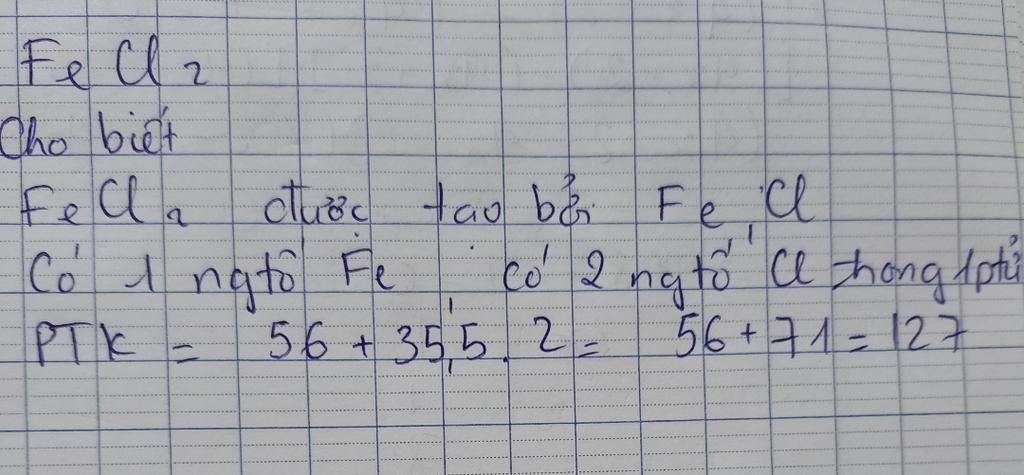 FeCl2
Cho biết
FeCl2 được tạo bởi Fe, Cl
Có 1 ngtố Fe, có 2 ngtố Cl trong 1ptử
PTK = 56 + 35,5 . 2 = 56 + 71 = 127